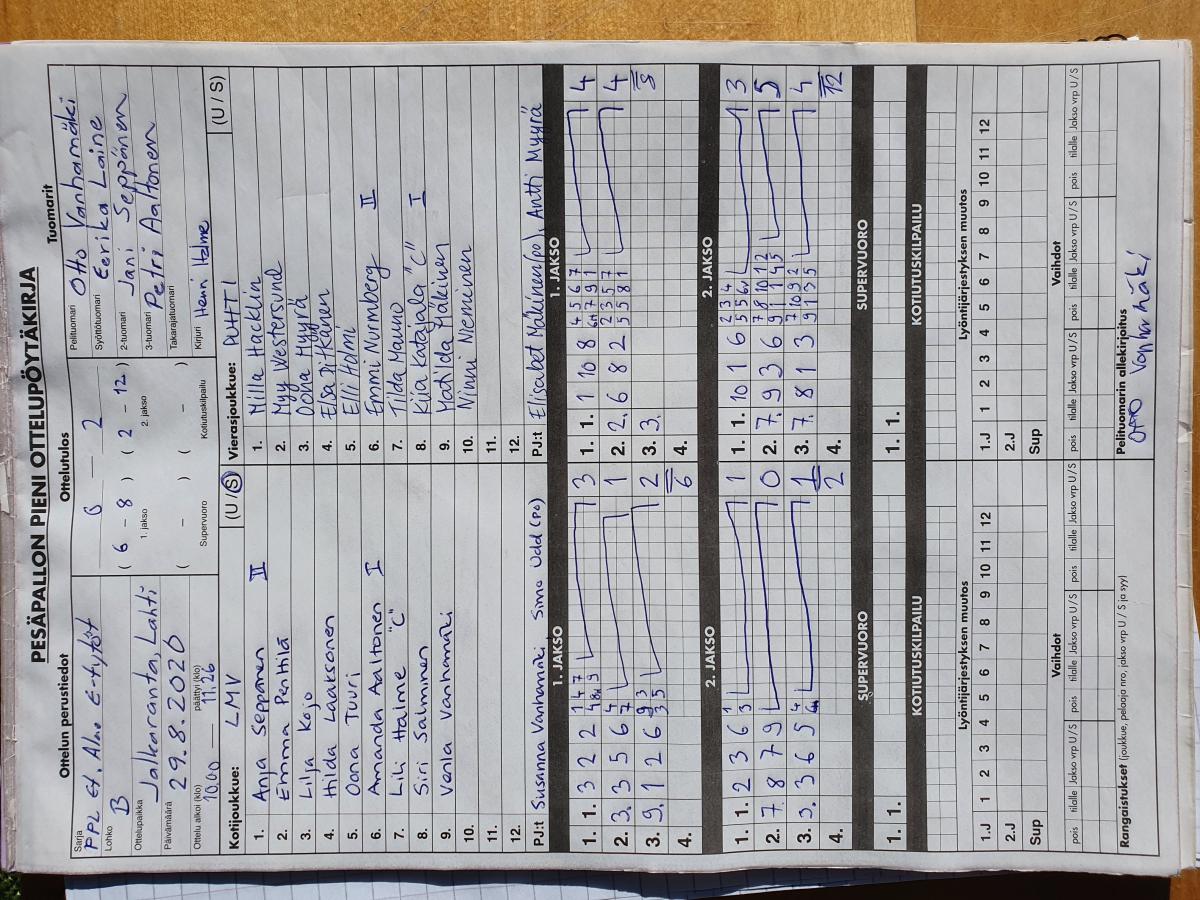 PESÄPALLON PIENI OTTELUPÖYTÄKIRJA
Ottelun perustiedot
Sarja
PPL Et. Alue E-tytöt
Lohko
B
Ottelupaikka
Jalkaranta, Lahti
Päivämäärä
29.8.2020
Ottelu alkoi (klo) päättyi (klo)
10.00 — 11.26
Ottelutulos
0 — 2
( 6 - 8 ) ( 2 - 12 )
1. jakso 2. jakso
( - ) ( - )
Supervuoro Kotiutuskilpailu
Tuomarit
Pelituomari Otto Vanhamäki
Syöttötuomari Eerika Laine
2-tuomari Jani Seppänen
3-tuomari Petri Aaltonen
Takarajatuomari
Kirjuri Henri Halme
Kotijoukkue: LMV (U / S)
1. Anja Seppänen II
2. Emma Penttilä
3. Lilja Kojo
4. Hilda Laaksonen
5. Oona Tuuri
6. Amanda Aaltonen I
7. Lili Halme "C"
8. Siri Salminen
9. Venla Vanhamäki
10.
11.
12.
PJ:t Susanna Vanhamäki, Simo Udd (po)
Vierasjoukkue: PUHTI (U / S)
1. Milla Hacklin
2. Myy Westersund
3. Oona Myyrä
4. Elsa Pitkänen
5. Elli Holmi
6. Emmi Nurmberg II
7. Tilda Mauno
8. Kiia Katajala "C" I
9. Matilda Mäkinen
10. Ninni Nieminen
11.
12.
PJ:t Elisabet Mäkinen (po), Antti Myyrä
1. JAKSO
1. 1. 3 2 2 3
2. 3. 3 5 6 1
3. 9. 1 2 6 2
4. 6
1. JAKSO
1. 1. 1 10 8 4
2. 2. 6 8 2 4
3. 3. 8
4.
2. JAKSO
1. 1. 2 3 6 1
2. 7. 8 7 9 0
3. 3. 3 6 5 1
4. 2
2. JAKSO
1. 1. 10 1 6 3
2. 7. 9 3 6 5
3. 7. 8 1 3 4
4. 12
SUPERVUORO
1. 1.
SUPERVUORO
1. 1.
KOTIUTUSKILPAILU
KOTIUTUSKILPAILU
Lyöntijärjestyksen muutos
1.J 1 2 3 4 5 6 7 8 9 10 11 12
2.J
Sup
Lyöntijärjestyksen muutos
1.J 1 2 3 4 5 6 7 8 9 10 11 12
2.J
Sup
Vaihdot
pois tilalle Jakso vrp U / S pois tilalle Jakso vrp U / S pois tilalle Jakso vrp U / S
Vaihdot
pois tilalle Jakso vrp U / S pois tilalle Jakso vrp U / S pois tilalle Jakso vrp U / S
Rangaistukset (joukkue, pelaaja nro, jakso vrp U / S ja syy)
Pelituomarin allekirjoitus
Otto Vanhamäki